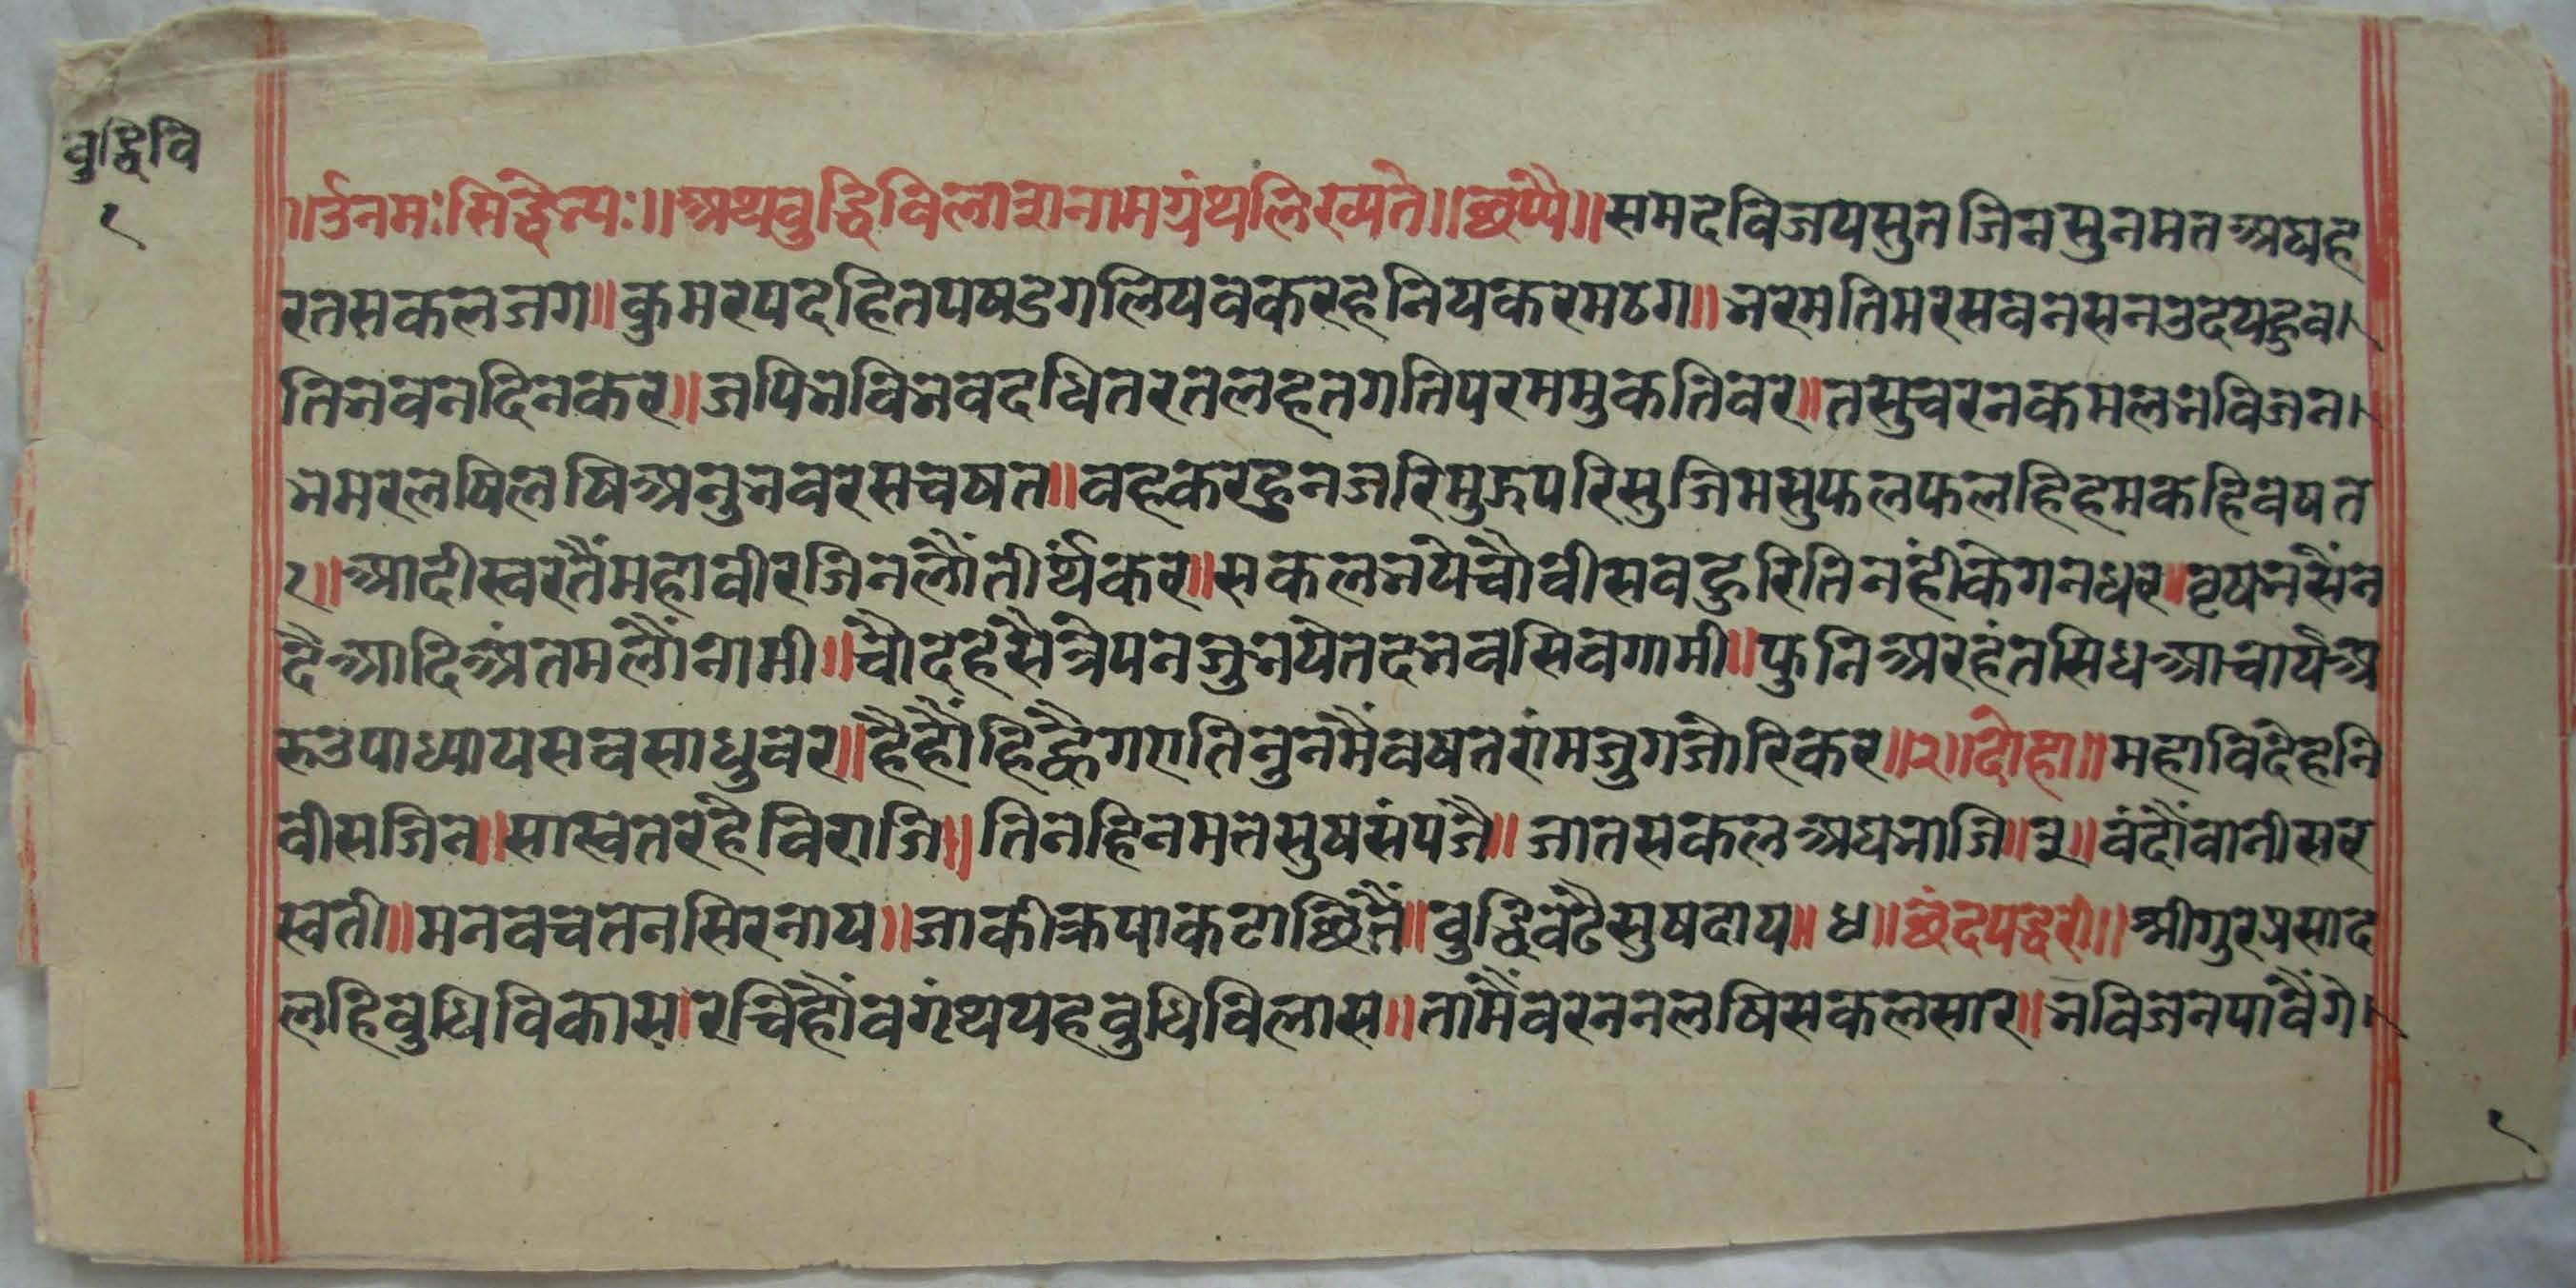 बुद्धिवि
१
॥ॐनमःसिद्धेभ्यः॥अथबुद्धिविलासनामग्रंथलिख्यते॥छप्पै॥समदविजयसुतजिनसुनमतअघह
रतसकलजग॥कुमरपदहितपषडगलियवकरहनियकरमठग॥भरमतिमरसवनसनउदयहुव।
तिभवनदिनकर॥जपिभविभवदधितरतलहतगतिपरममुकतिवर॥तसुचरनकमलभविजन।
भमरलषिलषिअनुभवरसचषत॥वहकरहुनजरिमुऊपरिसुजिमसुफलफलहिहमकहिवषत
१॥आदीस्वरतैंमहावीरजिनलौंतीर्थंकर॥सकलभयेचौवीसवहुरितिनहींकेगनधर॥वृषभसैंन
दैआदिअंतमलौंनामी॥चौदहसैत्रेपनजुभयेतदभवसिवगामी॥फुनिअरहंतसिधआचार्यअ
रुउपाध्यायसवसाधुवर॥हैहौंहिंह्वैगएतिनुनमैंवषतरांमजुगजोरिकर॥२॥दोहा॥महाविदेहनि
वीसजिन॥सास्वतरहैविराजि॥तिनहिनमतसुषसंपजै॥जातसकलअघभाजि॥३॥वंदौंवानीसर
स्वती॥मनवचतनसिरनाय॥जाकीक्रपाकटाछितैं॥वुद्धिवंटैसुषदाय॥४॥छंदपद्धरी॥श्रीगुरप्रसाद
लहिवुधिविकास।रचिहौंवगृंथयहवुधिविलास॥तांमैंवरननलषिसकलसार॥भविजनपावैंगे।
१